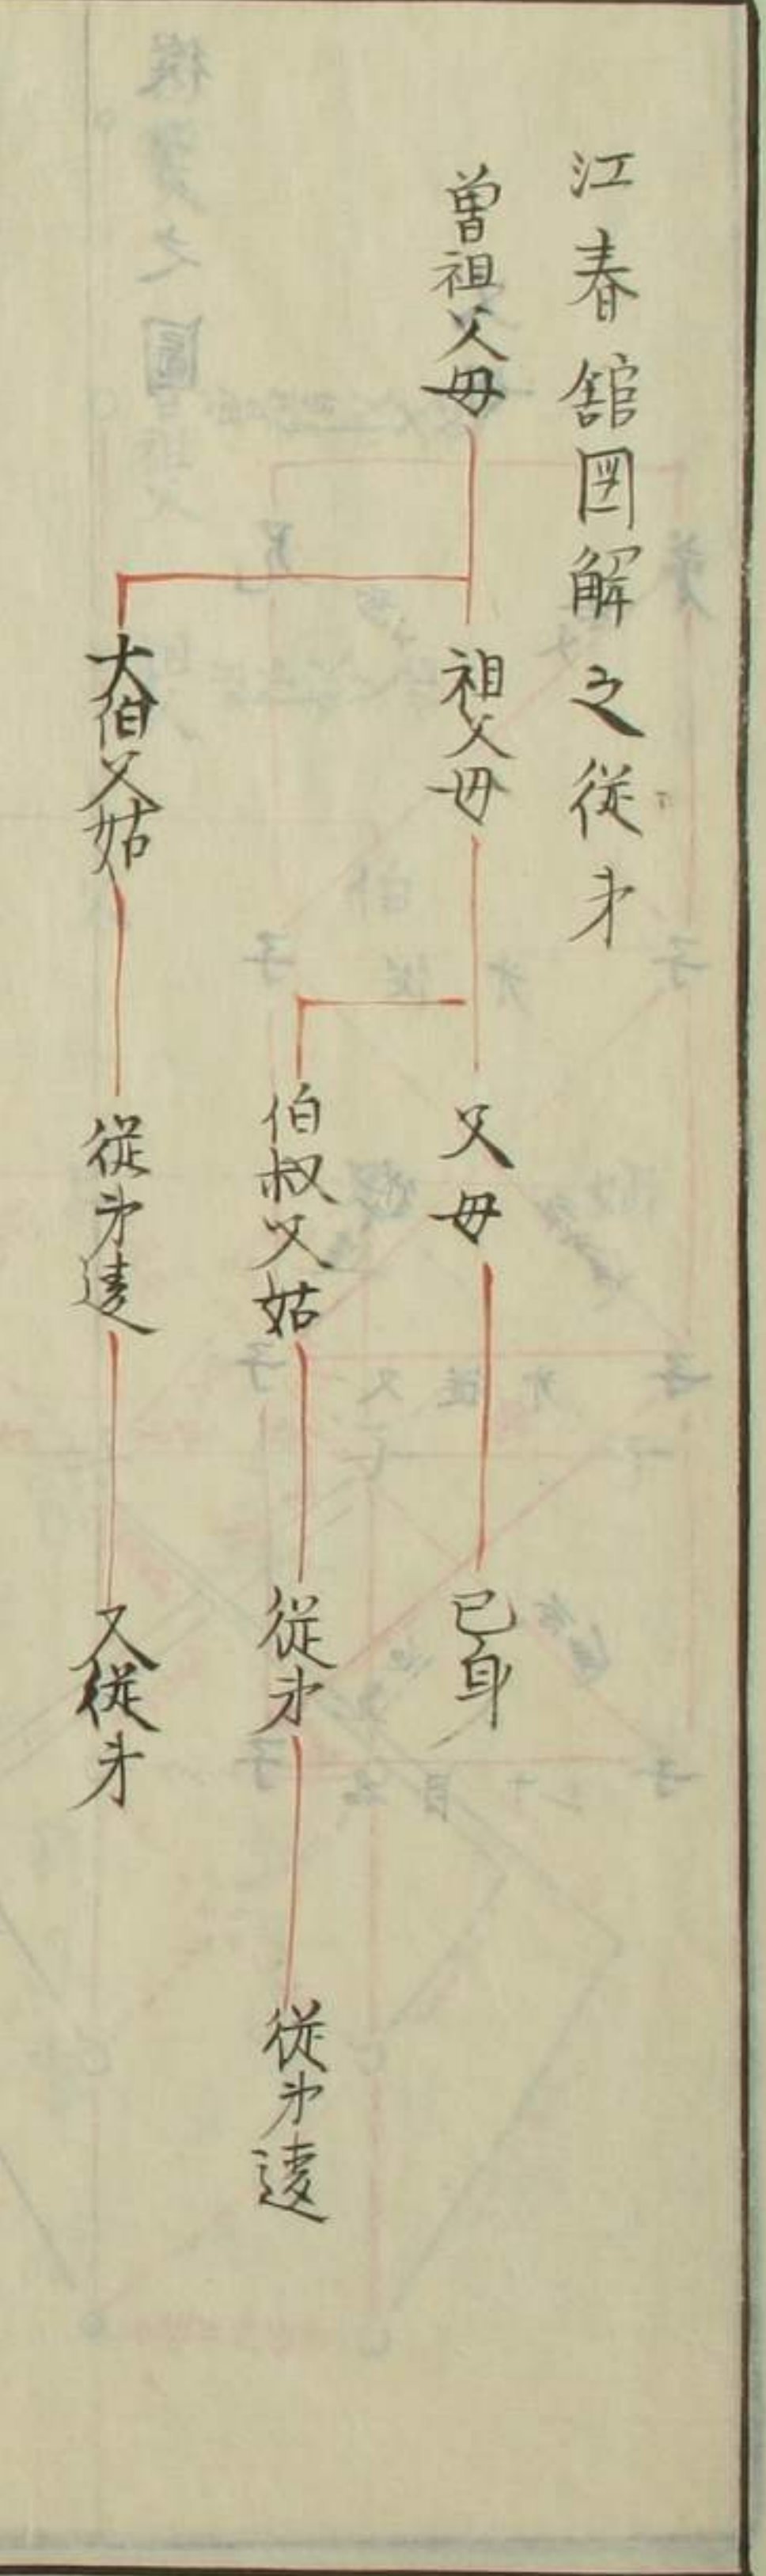 江春舘図解之従弟
曽祖父母
祖父母
父母
己身
伯叔父姑
従弟
従弟違
大伯父姑
従弟違
又従弟